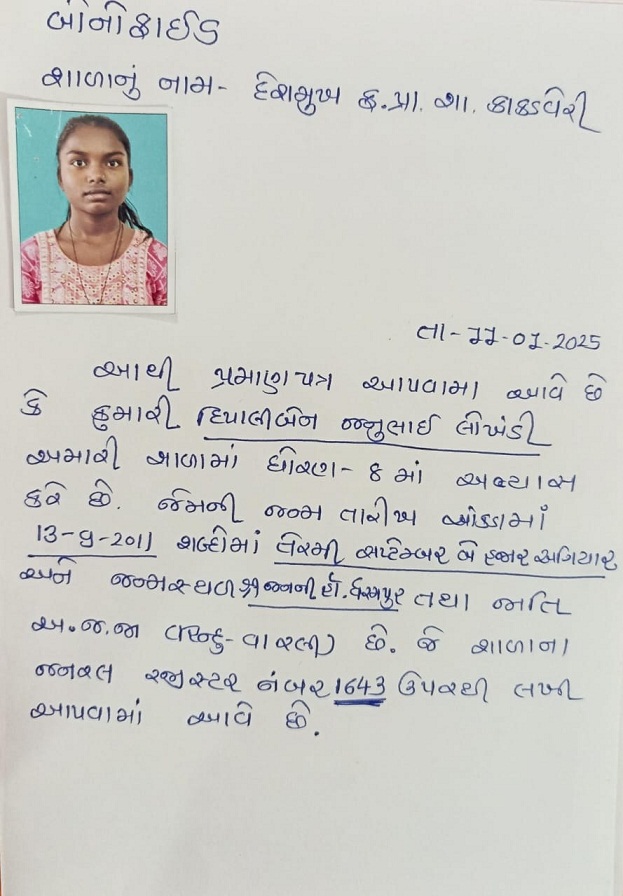 બોનોફાઈડ
શાળાનું નામ- દેશમુખ ફ. પ્રા. શા. કાકડવેરી
તા-11-07-2025
આથી પ્રમાણપત્ર આપવામા આવે છે
કે કુમારી દિપાલીબેન જનુભાઈ લોખંડી
અમારી શાળામાં ધોરણ- 8 માં અભ્યાસ
કરે છે. જેમની જન્મ તારીખ આંકડામાં
13-9-2011 શબ્દોમાં તેરમી સપ્ટેમ્બર બે હજાર અગિયાર
અને જન્મસ્થળ તા. ધરમપુર તથા જાતિ
અ.જ.જા (હિન્દુ-વારલી) છે. જે શાળાના
જનરલ રજીસ્ટર નંબર 1643 ઉપરથી લખી
આપવામાં આવે છે.